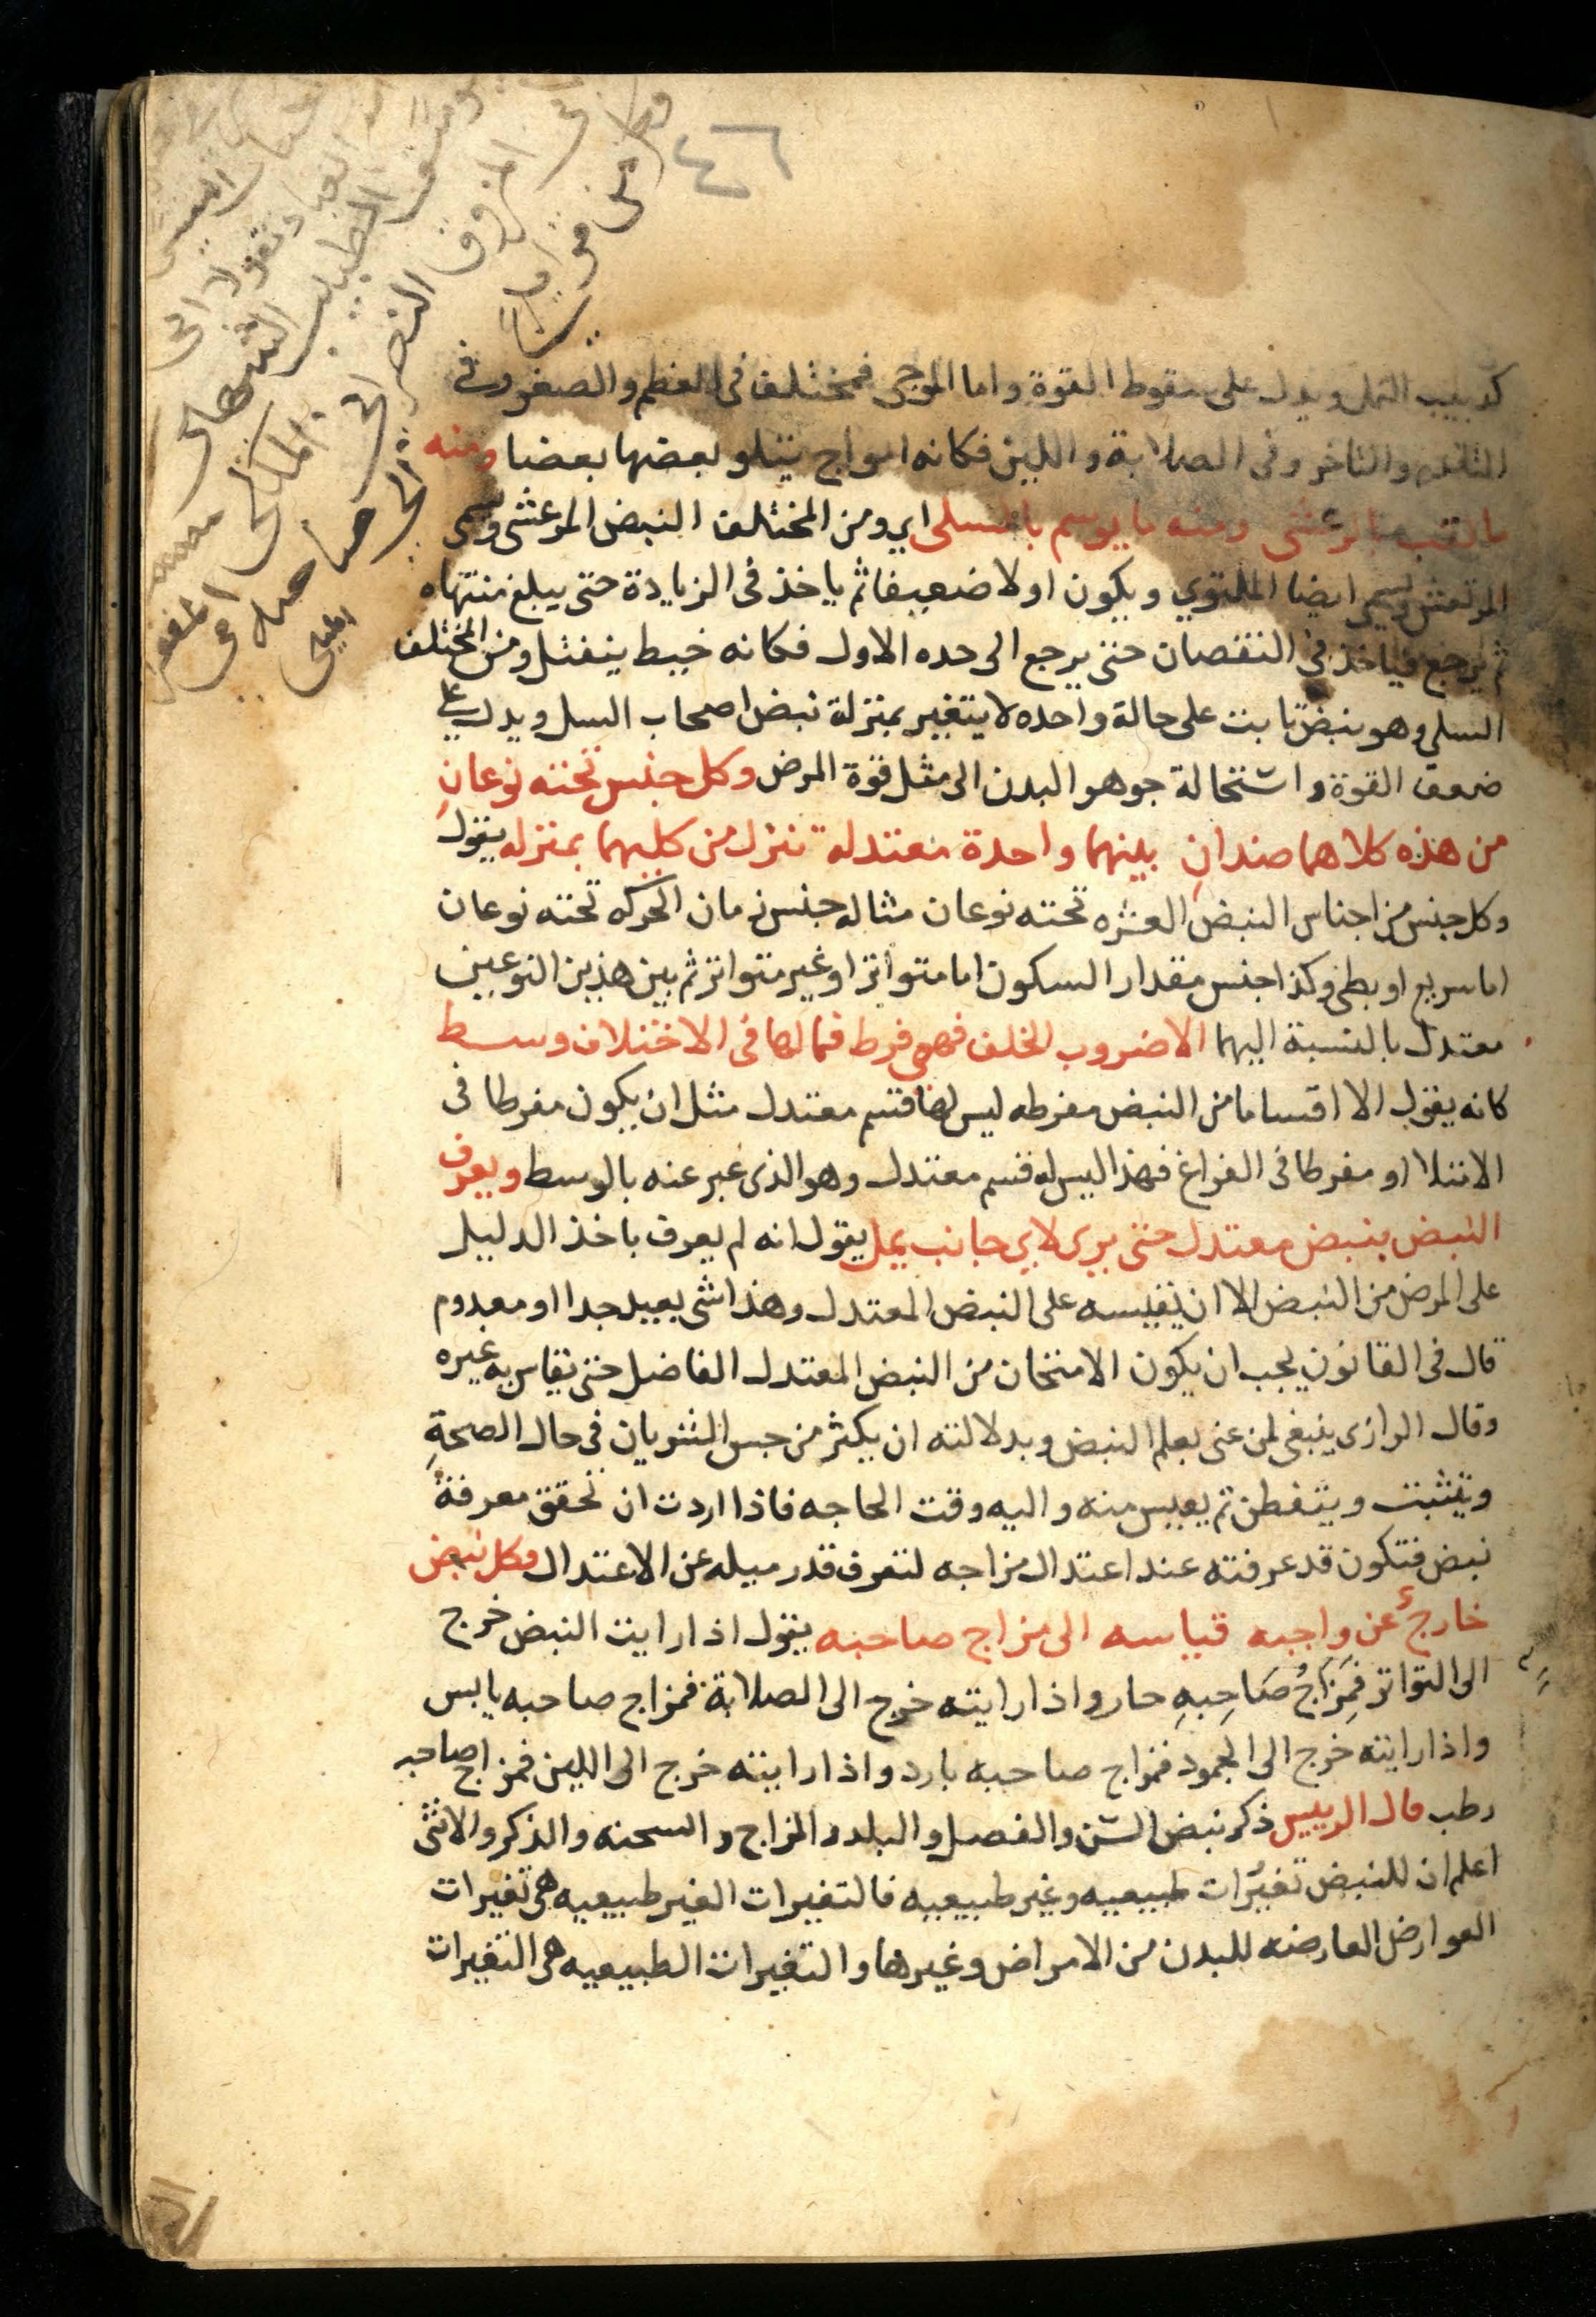 ٤٦
كدبيب النمل ويدل على سقوط القوة واما الموجى فمختلف فى العظم والصغر وفى
التقدم والتاخر وفى الصلابة واللين فكانه امواج يتلو بعضها بعضا ومنه
ما لقب بالمرعشى ومنه ما يوسم بالسلى اي ومن المختلف النبض المرعشى ويسمى
المرتعش ويسمى ايضا الملتوي ويكون اولا ضعيفا ثم ياخذ فى الزيادة حتى يبلغ منتهاه
ثم يرجع فياخذ فى النقصان حتى يرجع الى حده الاول فكانه خيط ينفتل ومن المختلف
السلي وهو نبض ثابت على حالة واحده لا يتغير بمنزلة نبض اصحاب السل ويدل على
ضعف القوة واستحالة جوهر البدن الى مثل قوة المرض وكل جنس تحته نوعانِ
من هذه كلاهما ضدانِ بينهما واحدة معتدله تنزل من كليهما بمنزله يقول
وكل جنس من اجناس النبض العشره تحته نوعان مثاله جنس زمان الحركه تحته نوعان
اما سريع او بطى وكذا جنس مقدار السكون اما متواتر او غير متواتر ثم بين هذين النوعين
معتدل بالنسبة اليهما الا ضروب الخلف فهى فرط فما لها فى الاختلاف وسط
كانه يقول الا اقساما من النبض مفرطه ليس لها قسم معتدل مثل ان يكون مفرطا فى
الامتلا او مفرطا فى الفراغ فهذا ليس له قسم معتدل وهو الذى عبر عنه بالوسط ويعرف
النبض بنبض معتدل حتى يرى لاي جانب يمل يقول انه لم يعرف باخذ الدليل
على المرض من النبض الا ان تقيسه على النبض المعتدل وهذا شى بعيد جدا او معدوم
قال فى القانون يجب ان يكون الامتحان من النبض المعتدل الفاضل حتى يقاس به غيره
وقال الرازى ينبغى لمن عنى بعلم النبض وبدلالته ان يكثر من جس الشريان فى حال الصحةِ
ويتثبت ويتفطن ثم يقيس منه واليه وقت الحاجه فاذا اردت ان تحقق معرفة
نبض فتكون قد عرفته عند اعتدال مزاجه لتعرف قدر ميله عن الاعتدال وكل نبض
خارج عن واجبه قياسه الى مزاج صاحبه يقول اذا رايت النبض خرج
الى التواتر فَمِزَاجُ صَاحِبِهِ حار واذا رايته خرج الى الصلابة فمزاج صاحبه يابس
واذا رايته خرج الى الجمود فمزاج صاحبه بارد واذا رايته خرج الى اللين فمزاج صاحبه
رطب قال الرييس ذكر نبض السن والفصل والبلد والمزاج والسحنه والذكر والانثى
اعلم ان للنبض تغيرات طبيعيه وغير طبيعيه فالتغيرات الغير طبيعيه هى تغيرات
العوارض العارضه للبدن من الامراض وغيرها والتغيرات الطبيعيه هى التغيرات